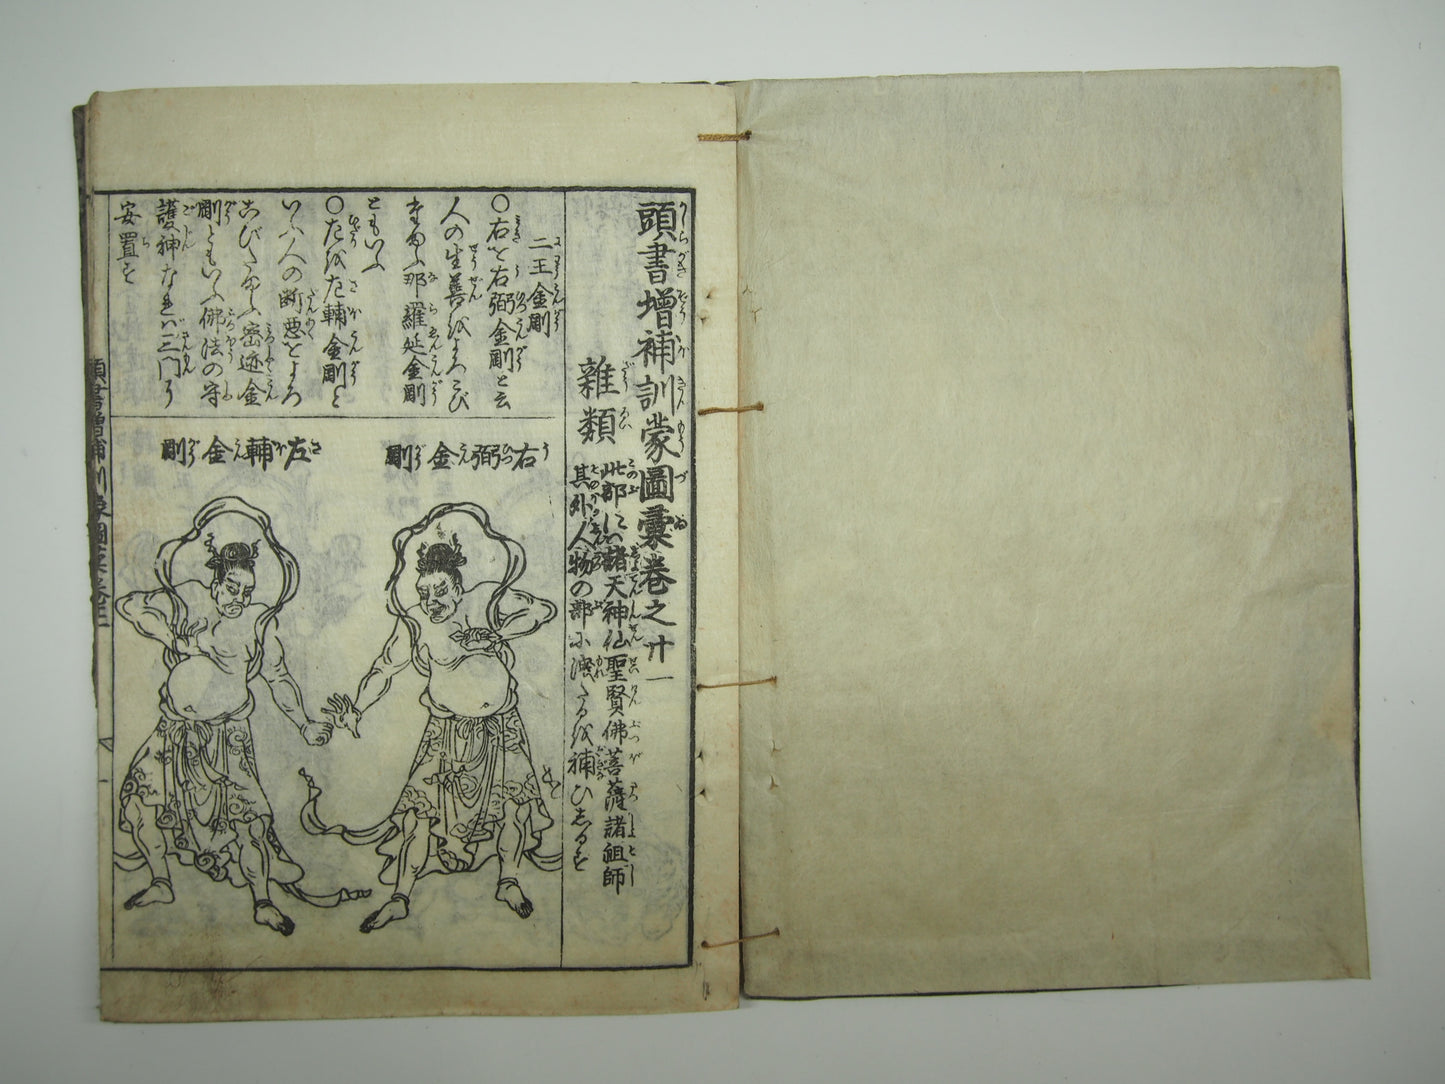 頭書増補訓蒙圖彙巻之廿一
雜類
此部にハ諸天神仙聖賢佛菩薩諸祖師
其外人物の部に洩たるを補ひしるす
二王金剛
〇右を右弼金剛と云
人の生善をよろこび
たまふ那羅延金剛
ともいふ
〇左を左輔金剛と
いふ人の断悪をよろ
こびたまふ密迹金
剛ともいふ佛法の守
護神なれハ三門に
安置す
右弼金剛
左輔金剛
頭書増補訓蒙圖彙巻